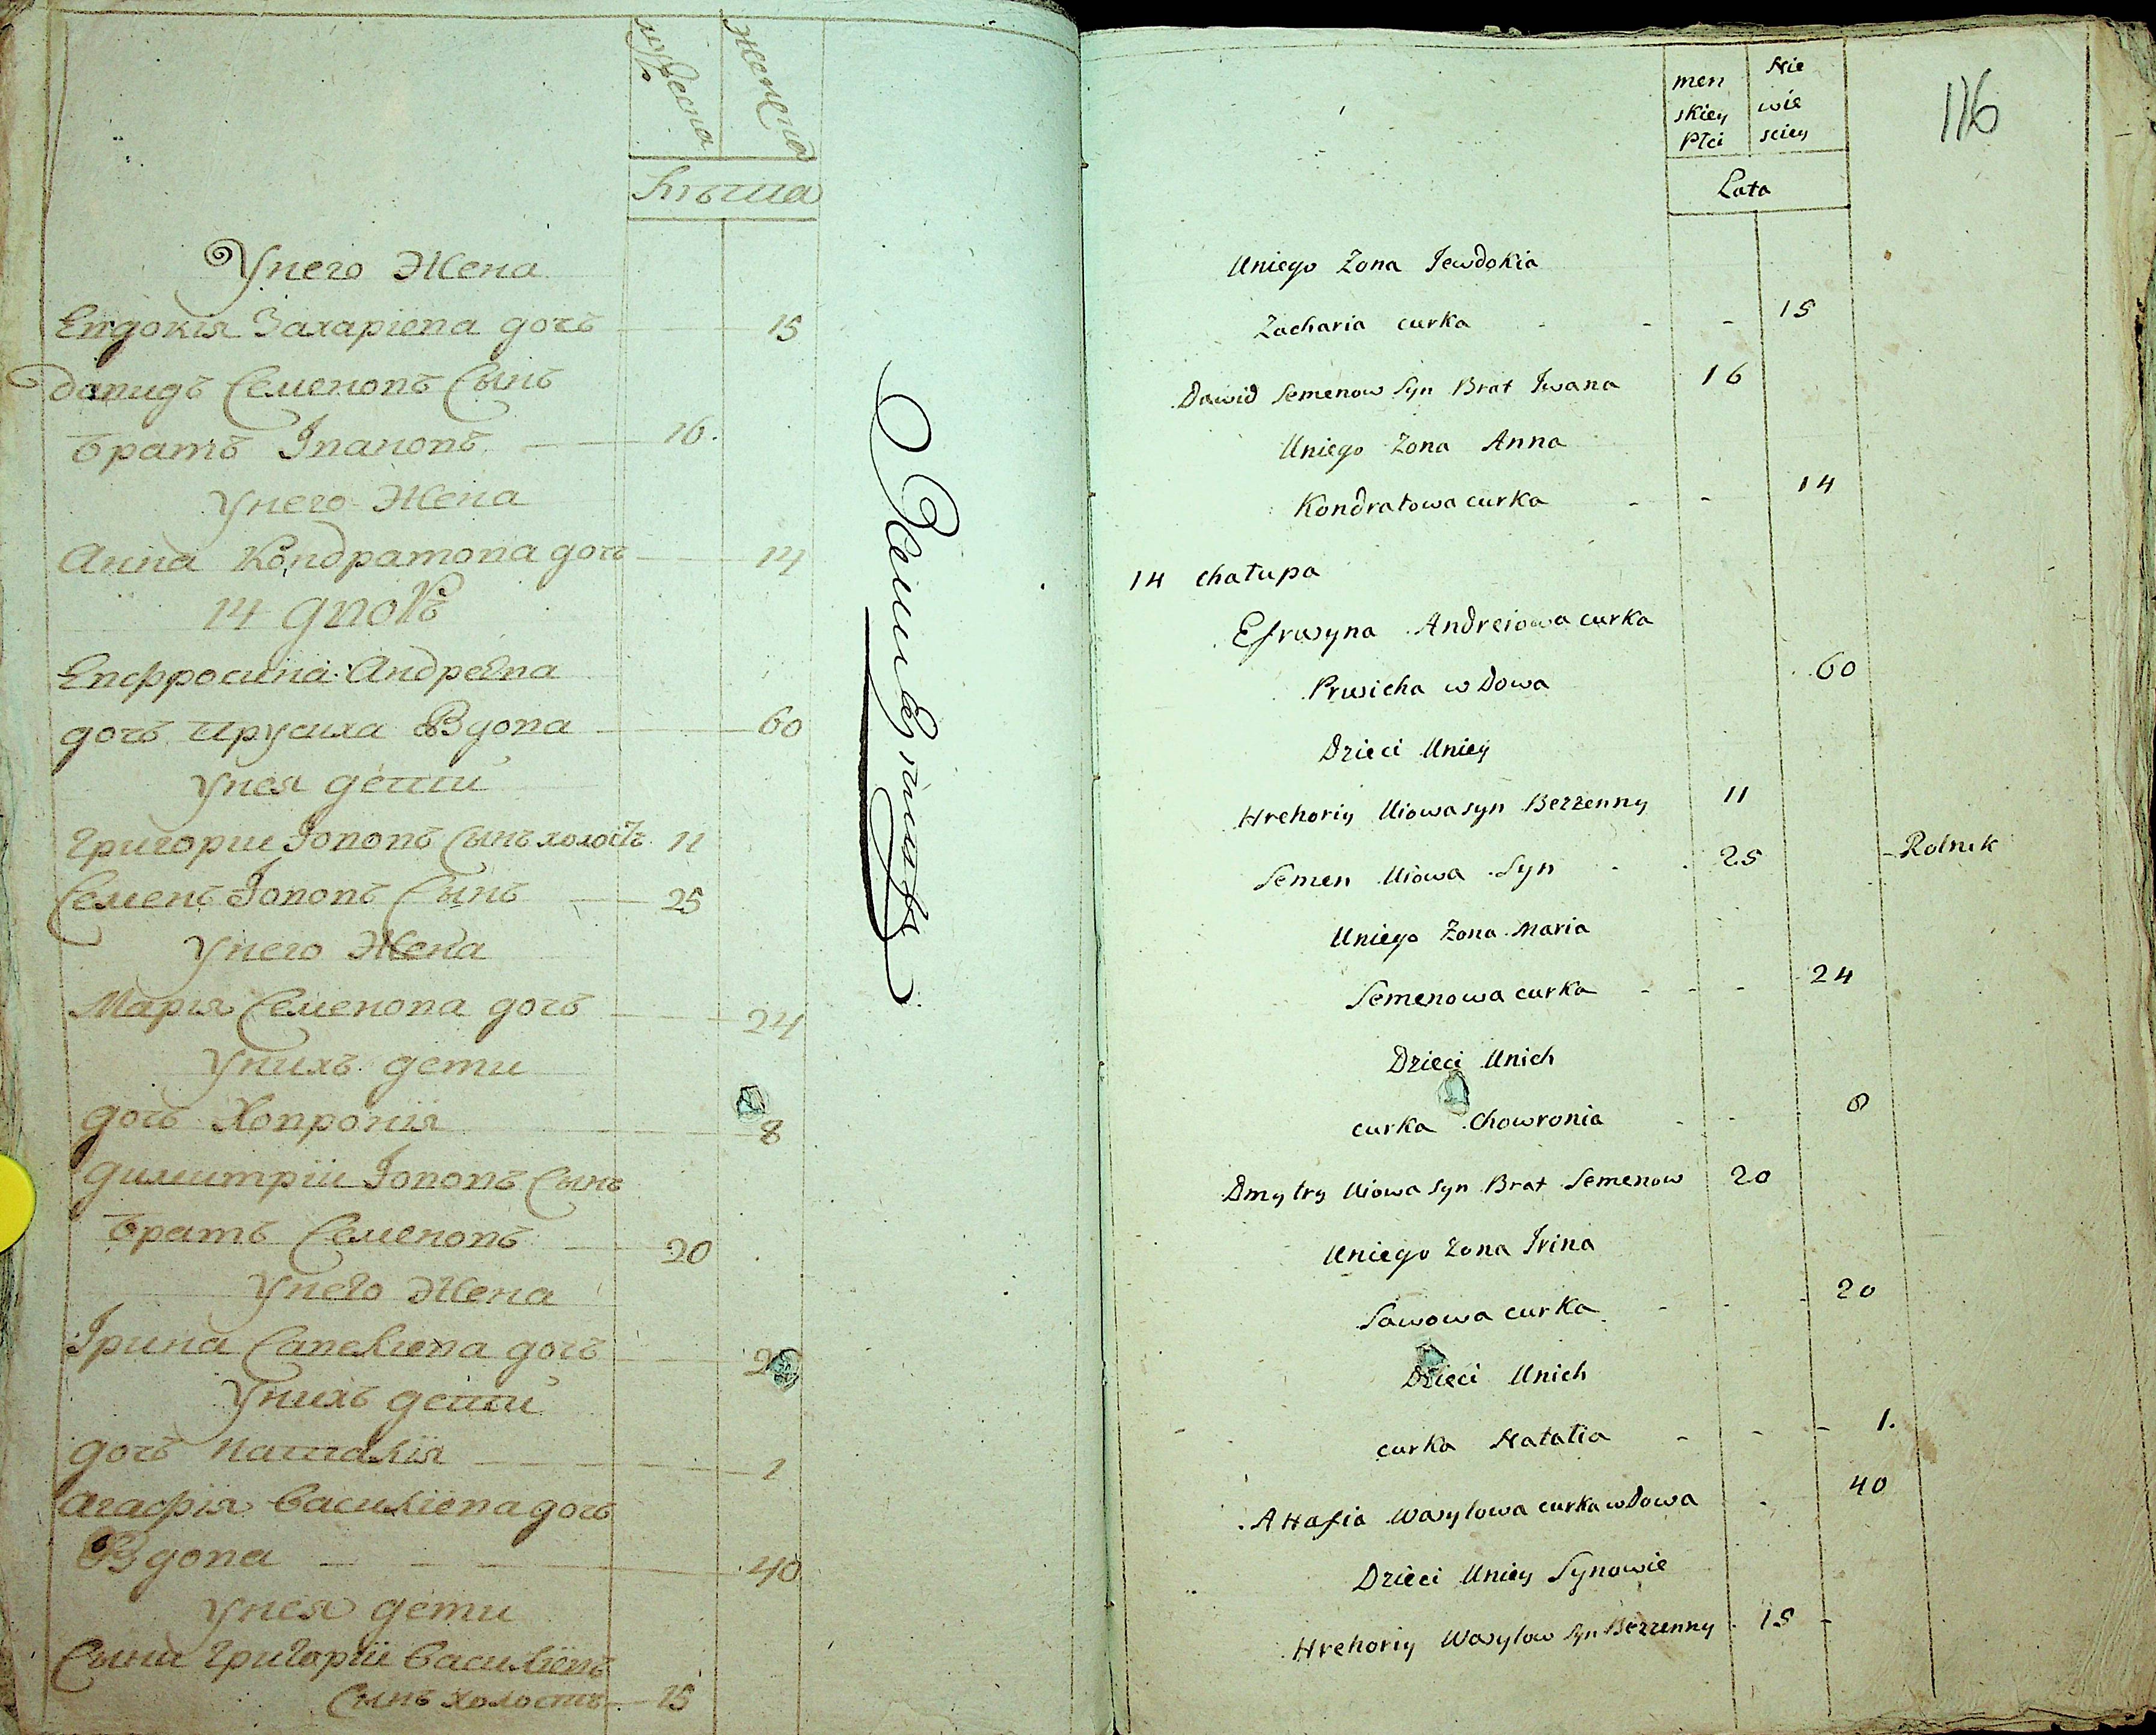 мужеска
женска
Лѣта
Унего Жена
Евдокія Захаріева дочь 15
Давидъ Семеновъ Сынъ
братъ Івановъ 16.
Унего Жена
Анна Кондратова дочь 14
14 дворъ
Евфросина Андреева
дочь прусиха Вдова 60
Унея дети
Григории Іововъ Сынъ холостъ 11
Семенъ Іововъ Сынъ 25
Унего Жена
Марія Семенова дочь 24
Унихъ дети
дочь Ховронія 8
димитріи Іововъ Сынъ
братъ Семеновъ 20
Унего Жена
Ірина Савелиева дочь 20
Унихъ дети
дочь Наталія 1
Агафія Василиева дочь
Вдова 40
Унея дети
Сынъ Григоріи Василіевъ
Сынъ холостъ 15
men Nie
skiey wie
Płci sciey
116
Lata
Uniego Zona Jewdokia
Zacharia curka 15
Dawid Semenow Syn Brat Iwana 16
Uniego Zona Anna
Kondratowa curka 14
14 chałupa
Efrusyna Andreiowa curka
Prusicha wdowa 60
Dzieci Uniey
Hrehoriy Uiowa syn Bezzenny 11
Semen Uiowa Syn 25 Rolnik
Uniego Zona Maria
Semenowa curka 24
Dzieci Unich
curka Chowronia 8
Dmytry Uiowa syn Brat Semenow 20
Uniego Zona Irina
Sawowa curka 20
Dzieci Unich
curka Natalia 1.
AHafia Wasylowa curka wdowa 40
Dzieci Uniey Synowie
Hrehoriy Wasylow Syn Bezzenny 15